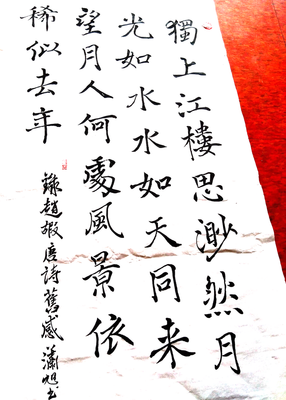 獨上江樓思渺然月
光如水水如天同来
望月人何處風景依
稀似去年
錄趙嘏唐詩舊感瀟